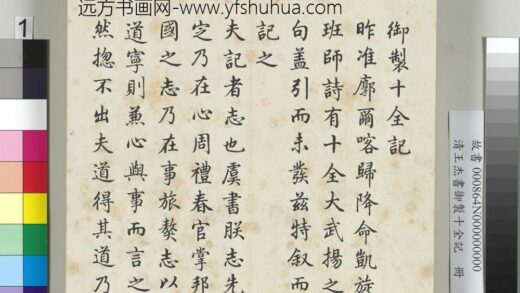 远方书画网-www.yfshuhua.com
1
御製十全記
昨准廓爾喀歸降命凱旋
班師詩有十全大武揚之
句盖引而未發兹特叙而
記之
夫記者志也虞書朕志先
定乃在心周禮春官掌邦
國之志乃在事旅獒志以
道寧則兼心與事而言之
然揔不出夫道得其道乃
故書 000864N000000000
清王杰書御製十全記 冊